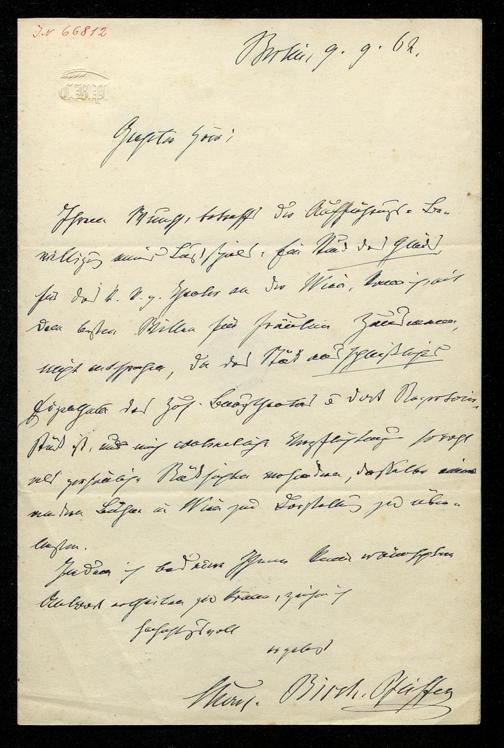 J.N 66812
Berlin, 9. 9. 62.
C.B.P.
Geehrter Herr!
Ihrem Wunsch, betreffs der Aufführungs-Be-
willigung meines Lustspiels: Ein Kind des Glücks
für das k. k. p. Theater an der Wien, kann ich mit
dem besten Willen für Fräulein
nicht entsprechen, da das Stück ausschließliches
des Hof-Burgtheaters u dort Repertoir-
Stück ist, und mich contractliche Verpflichtung sowohl
als persönliche Rücksichten verhindern, dasselbe einer
andern Bühne in Wien zur Darstellung zu über-
lassen.
Indem ich bedaure Ihnen keine erwünschtere
Antwort ertheilen zu können, zeichne ich
hochachtungsvoll
ergebenst
Birch-Pfeiffer